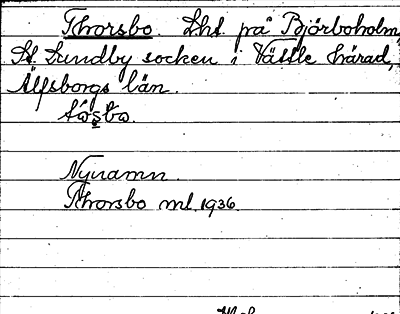 Thorsbo. Lht. på Björboholm,
St. Lundby socken i Vättle härad,
Älfsborgs län.
Nynamn.
Thorsbo ml. 1936.